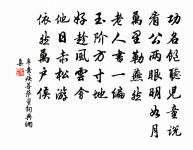 功名飽聽兒童説
看公兩眼明如月
萬里勒燕然
老人書一編
玉階方寸地
好趁風雲會
他日赤松游
依然萬户侯
辛棄疾菩薩蠻詞典網